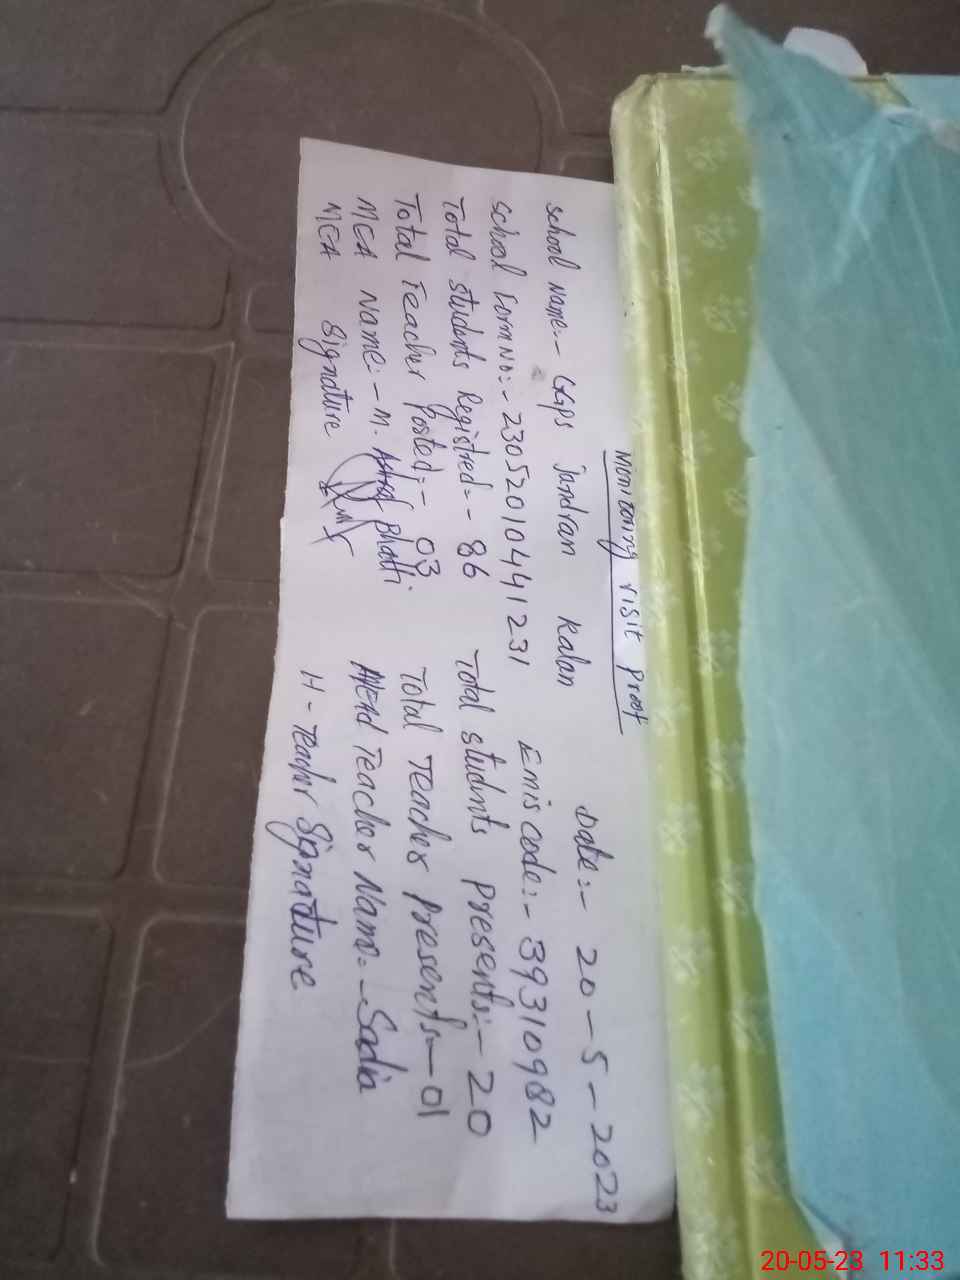 Monitoring visit proof
School Name:- GGPS Jandran Kalan Date:- 20-5-2023
School Form No:- 23052010441231 Emis code:- 39310982
Total students Registred:- 86 Total students presents:- 20
Total Teacher Posted:- 03 Total Teacher presents:- 01
MEA Name:- M. Bhatti Head Teacher Name:- Sadia
MEA Signature H-Teacher Signature
20-05-23 11:33